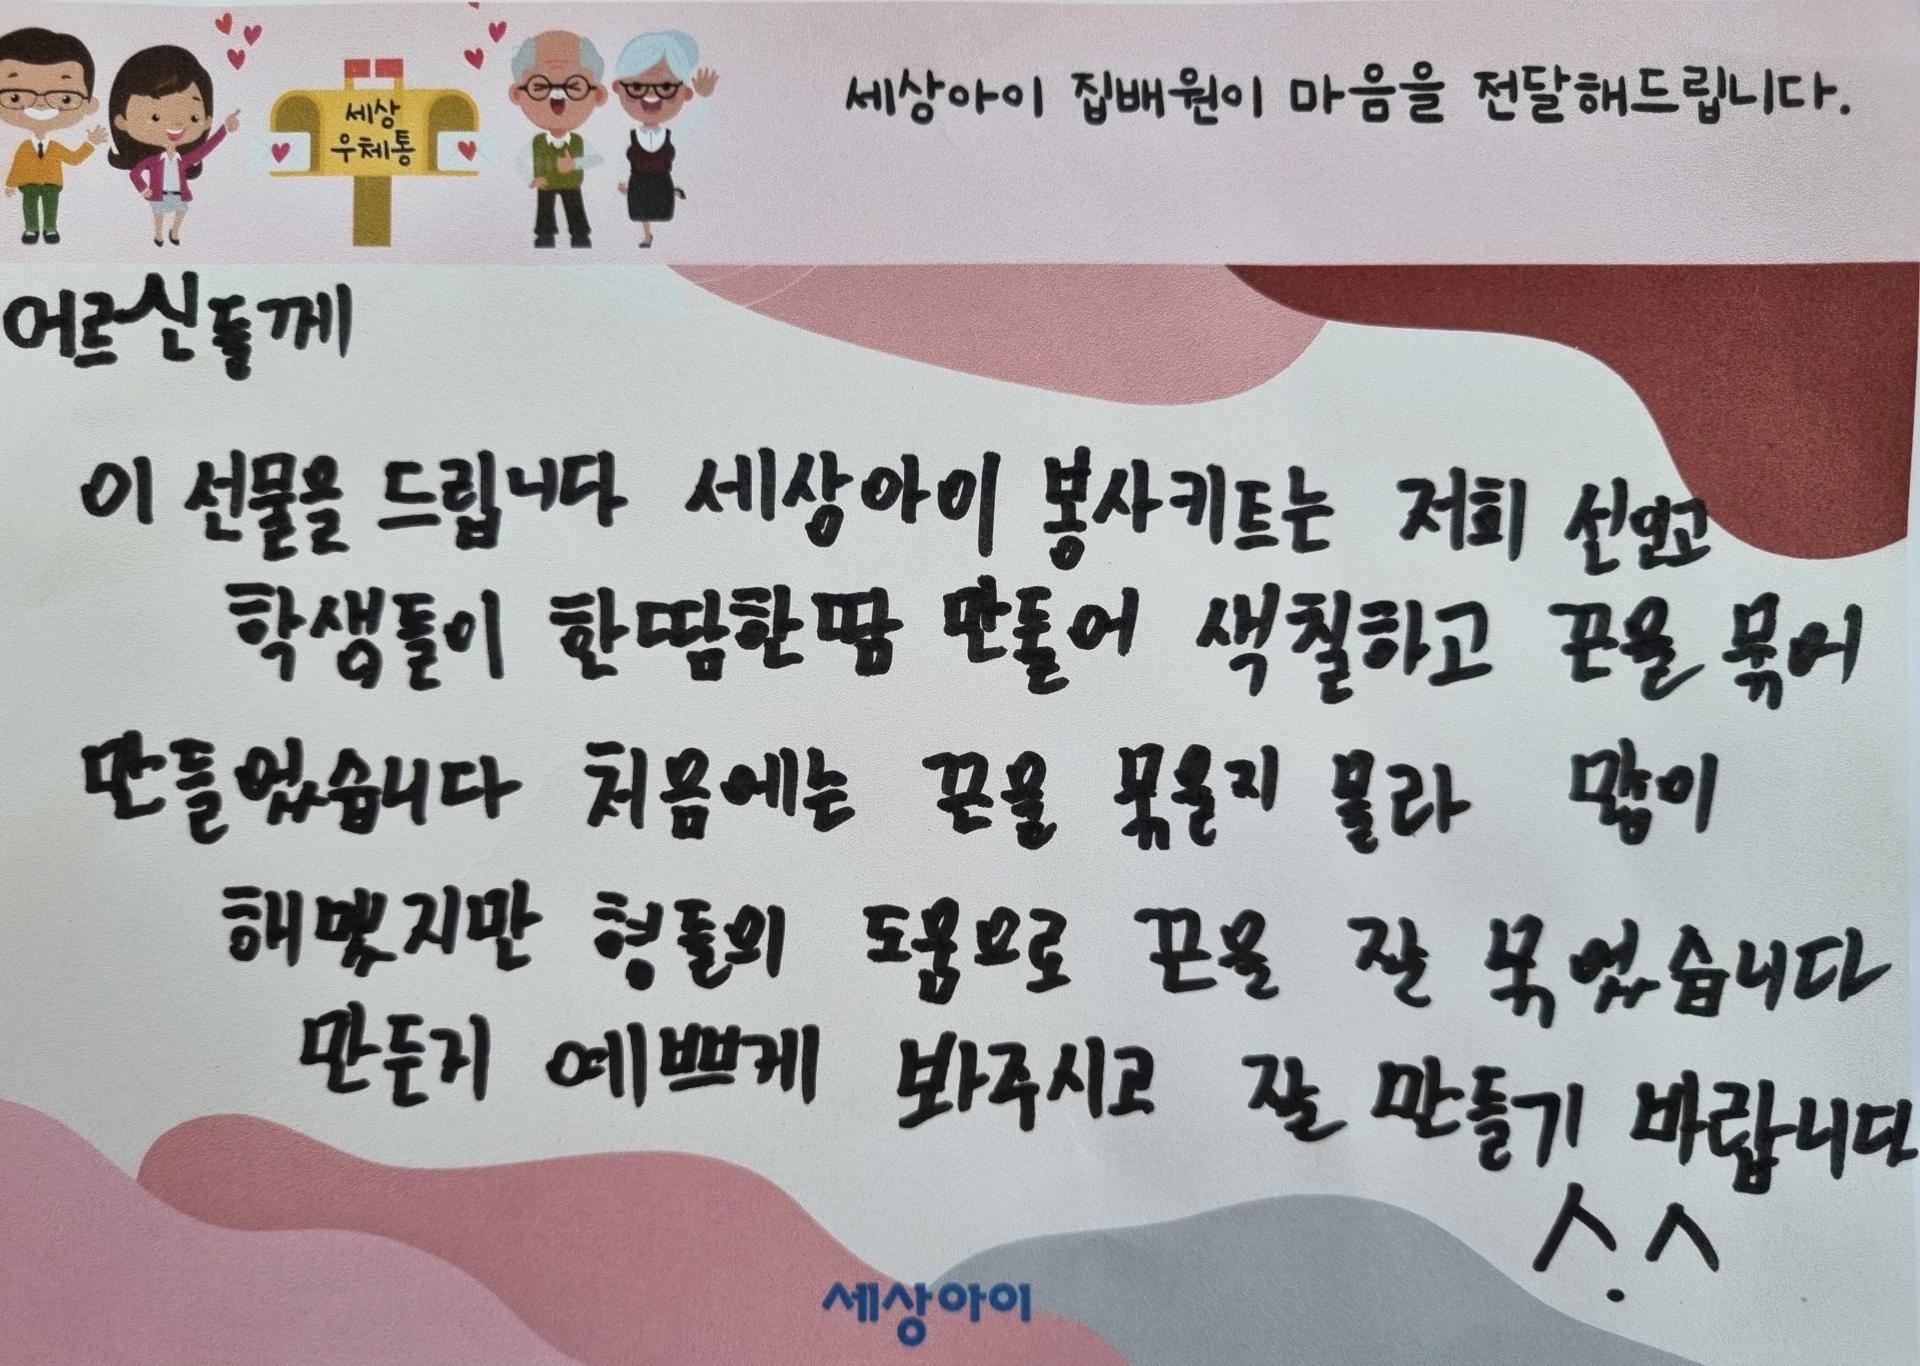 세상아이 집배원이 마음을 전달해드립니다.
세상
우체통
어르신들께
이 선물을 드립니다 세상아이 봉사키트는 저희 선연고
학생들이 한땀한땀 만들어 색칠하고 끈을 묶어
만들었습니다 처음에는 끈을 묶을지 몰라 많이
해맸지만 형들의 도움으로 끈을 잘 묶었습니다
만든거 예쁘게 봐주시고 잘 만들기 바랍니다
^.^
세상아이